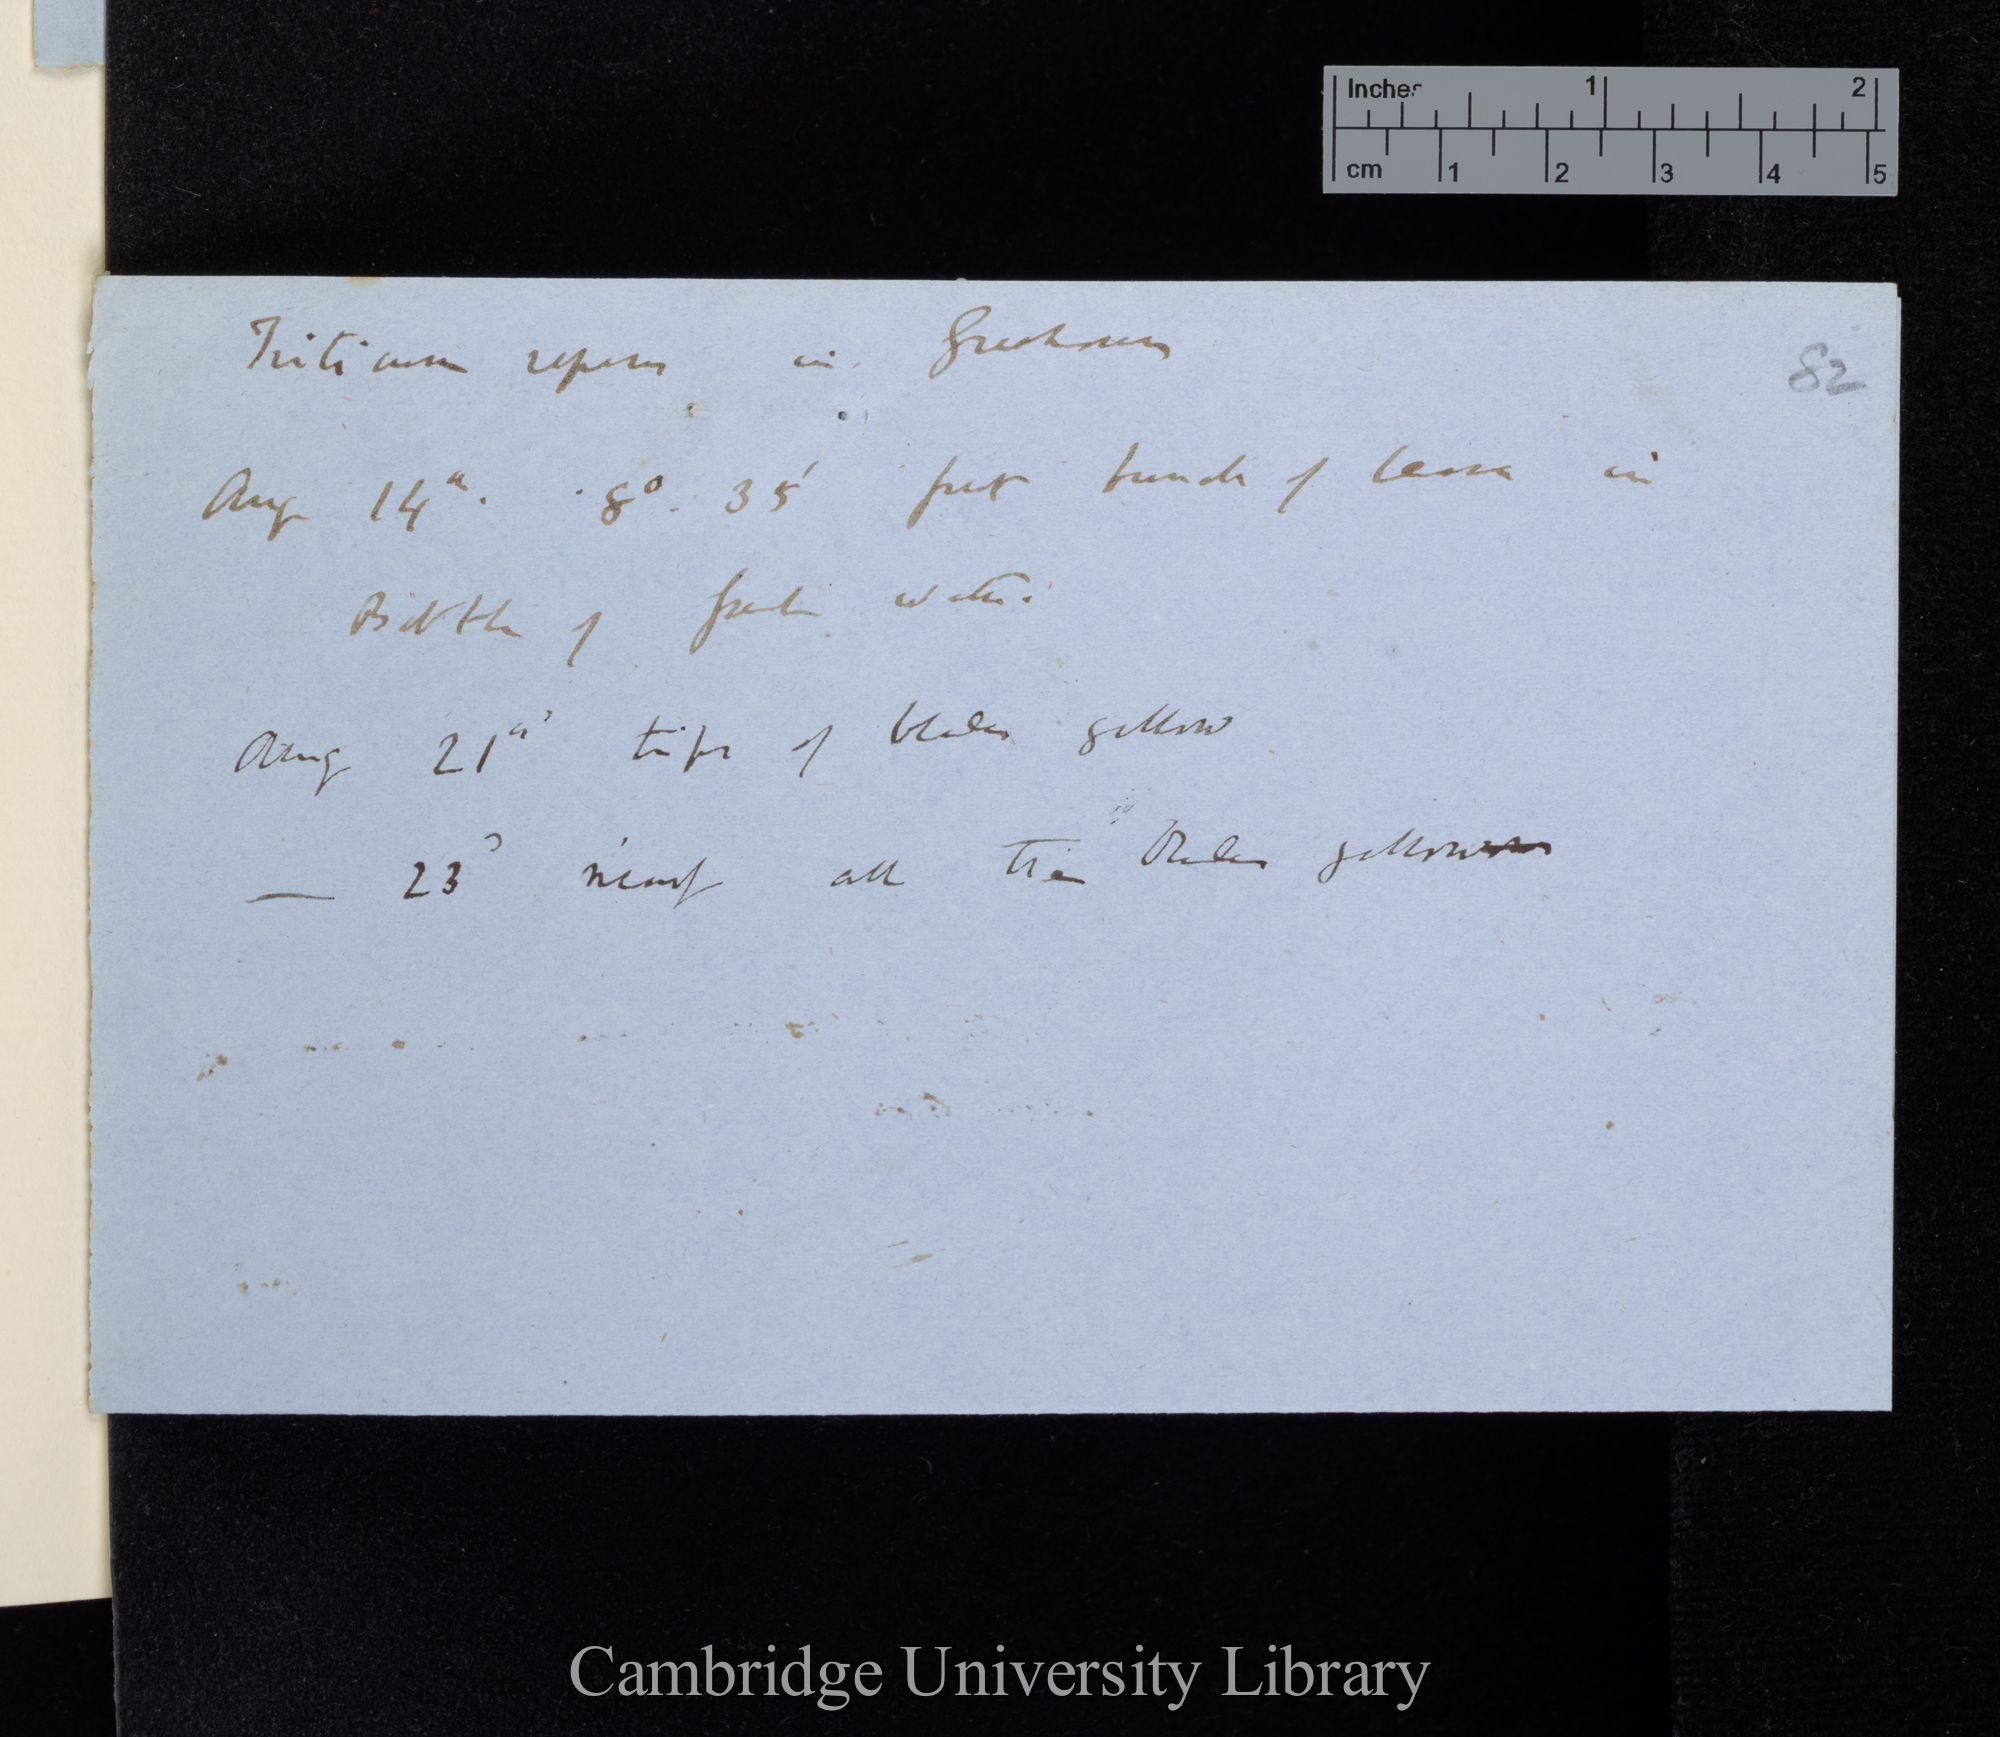 Inches 1 2
cm 1 2 3 4 5
82
Triticum repens in Greenhouse
Aug 14th. 8°. 35' put bunch of leaves in
Bottle of fresh water.
Aug 21st tips of blades yellow
— 23d nearly all the blades yellow
Cambridge University Library